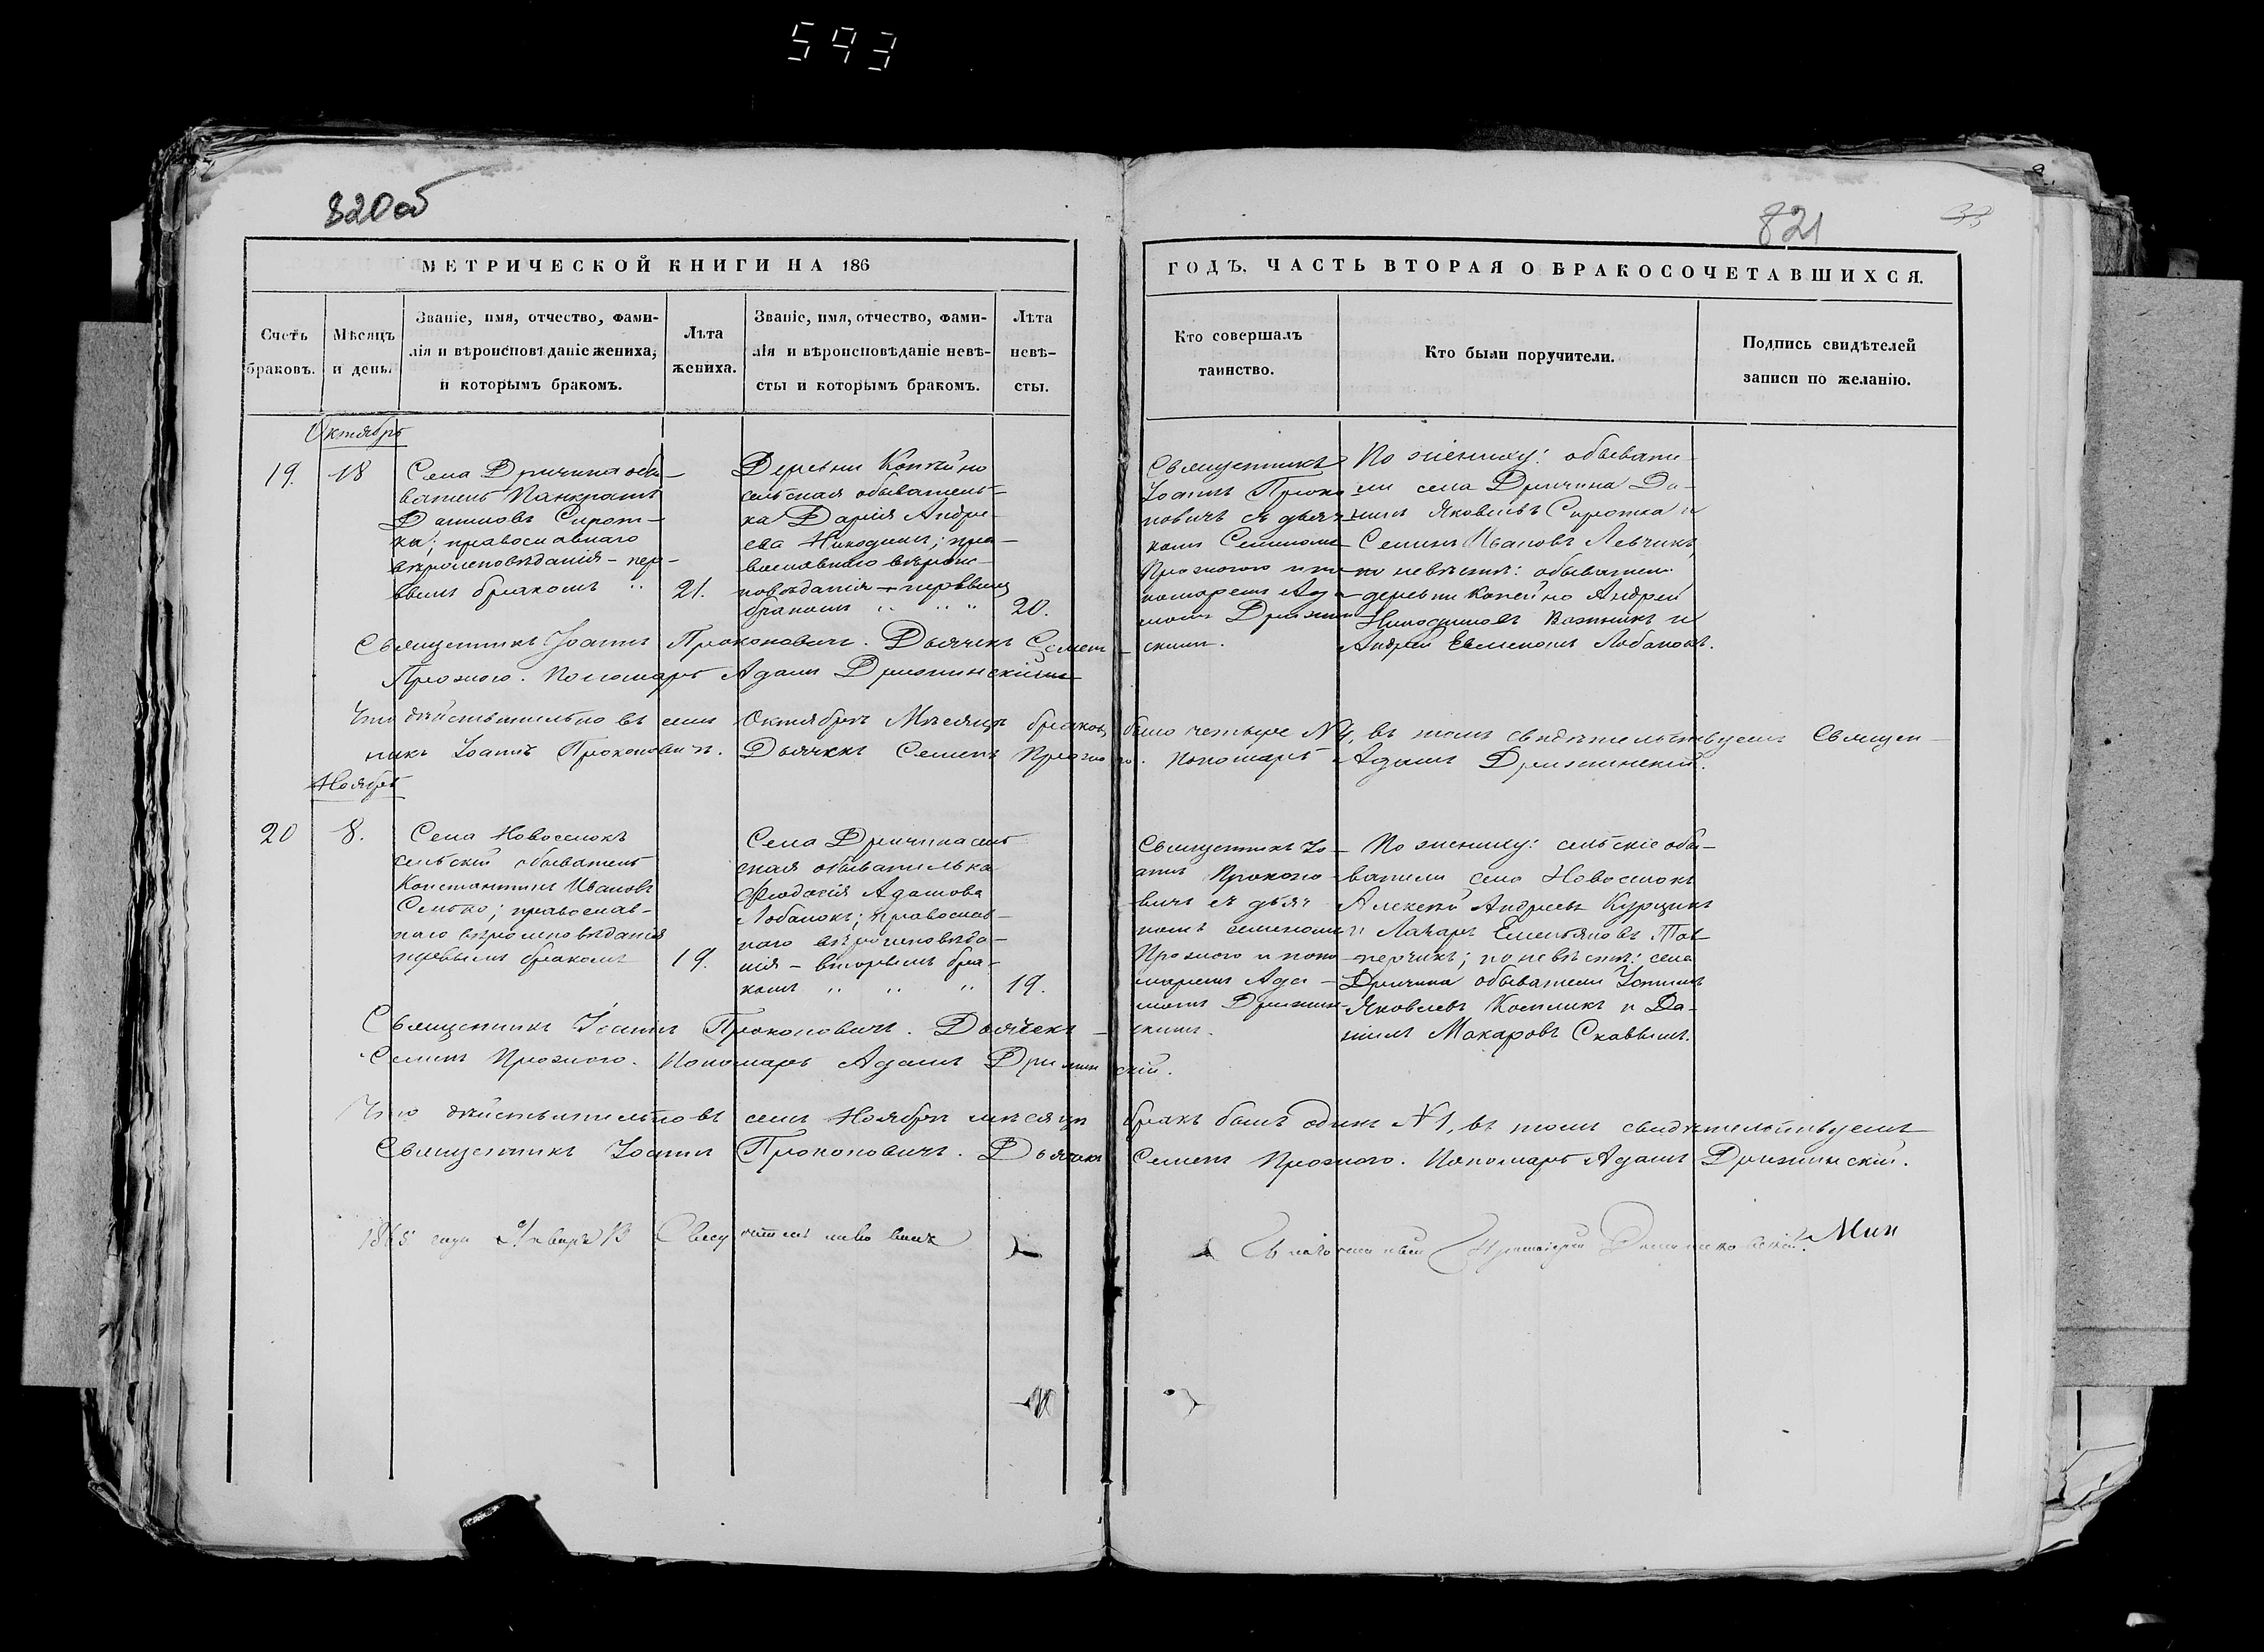 593
820об
821
33
МЕТРИЧЕСКОЙ КНИГИ НА 186
ГОДЪ, ЧАСТЬ ВТОРАЯ О БРАКОСОЧЕТАВШИХСЯ.
Счетъ
браковъ.
Мѣсяцъ
и день.
Званіе, имя, отчество, фами-
лія и вѣроисповѣданіе жениха,
и которымъ бракомъ.
Лѣта
жениха.
Званіе, имя, отчество, фами-
лія и вѣроисповѣданіе невѣ-
сты и которымъ бракомъ.
Лѣта
невѣ-
сты.
Кто совершалъ
таинство.
Кто были поручители.
Подпись свидѣтелей
записи по желанію.
Октябрь
19.
18
Села Дричина обы-
ватель Панкратъ
Даниловъ Сирот-
ка; православнаго
вѣроисповѣданія - пер-
вымъ бракомъ "
21.
Деревни Копейно
сельская обыватель-
ка Дарія Андре-
ева Никодимъ; пра-
вославнаго вѣроис-
повѣданія - первымъ
бракомъ " " "
20.
Священникъ
Іоаннъ Проко-
повичъ съ дьяч-
комъ Семеномъ
Прожого и по-
номаремъ Ада-
момъ Дрижин-
скимъ.
По жениху: обывате-
ли села Дричина Да-
нилъ Яковлевъ Сиротка и
Семенъ Ивановъ Левчикъ,
по невѣстѣ: обыватели
деревни Копейно Андрей
Никодимовъ и
Андрей Лобанокъ.
Священникъ Іоаннъ Прокоповичъ. Дьячекъ Семенъ
Прожого. Пономарь Адамъ Дрижинскій
Что дѣйствительно въ семъ Октябрѣ Мѣсяцѣ браковъ было четыре № 4, въ томъ свидѣтельствуемъ Священ-
никъ Іоаннъ Прокоповичъ. Дьячекъ Семенъ Прожого. Пономарь Адамъ Дрижинскій.
Ноябрь
20
8.
Села Новоселокъ
сельскій обыватель
Константинъ Ивановъ
Сенько; православ-
наго вѣроисповѣданія
первымъ бракомъ
19.
Села Дричина сель-
ская обывателька
Ѳеодосія Адамова
Лобанокъ; православ-
наго вѣроисповѣда-
нія - вторымъ бра-
комъ " " "
19.
Священникъ Іо-
аннъ Прокопо-
вичъ съ дьяч-
комъ Семеномъ
Прожого и поно-
маремъ Ада-
момъ Дрижин-
скимъ.
По жениху: сельскіе обы-
ватели села Новоселокъ
Алексѣй Андреевъ Курцикъ
и Лазарь Емельяновъ
по невѣстѣ: села
Дричина обыватели
Яковлевъ Костликъ и Да-
нилъ Макаровъ
Священникъ Іоаннъ Прокоповичъ. Дьячекъ
Семенъ Прожого. Пономарь Адамъ Дрижинскій.
Что дѣйствительно въ семъ Ноябрѣ мѣсяцѣ бракъ былъ одинъ № 1, въ томъ свидѣтельствуемъ
Священникъ Іоаннъ Прокоповичъ. Дьячекъ Семенъ Прожого. Пономарь Адамъ Дрижинскій.
1865 года Января 13